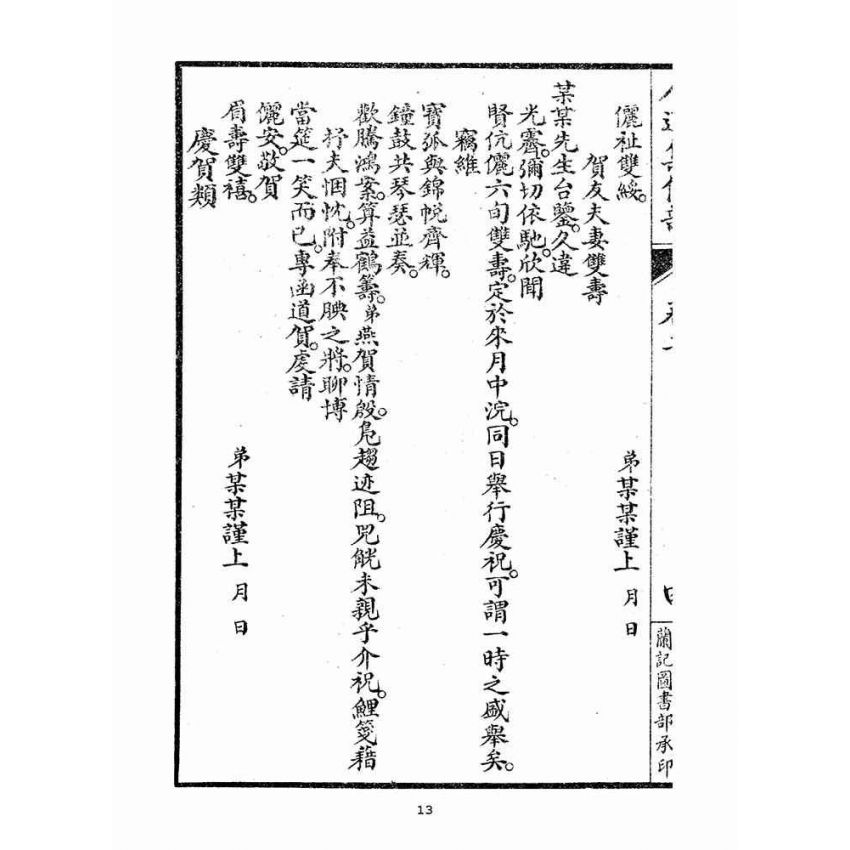 儷祉雙綏。
弟某某謹上 月 日
賀友夫妻雙壽
某某先生台鑒。久違
光霽。彌切依馳。欣聞
賢伉儷六旬雙壽。定於來月中浣。同日舉行慶祝。可謂一時之盛舉矣。
竊維
寶弧與錦帨齊輝。
鐘鼓共琴瑟並奏。
歡騰鴻案。算益鶴籌。弟燕賀情殷。鳧趨迹阻。兕觥未親乎介祝。鯉箋藉
抒夫悃忱。附奉不腆之將。聊博
當筵一笑而已。專函道賀。虔請
儷安。敬賀
眉壽雙禧。
弟某某謹上 月 日
慶賀類
蘭記圖書部承印
13